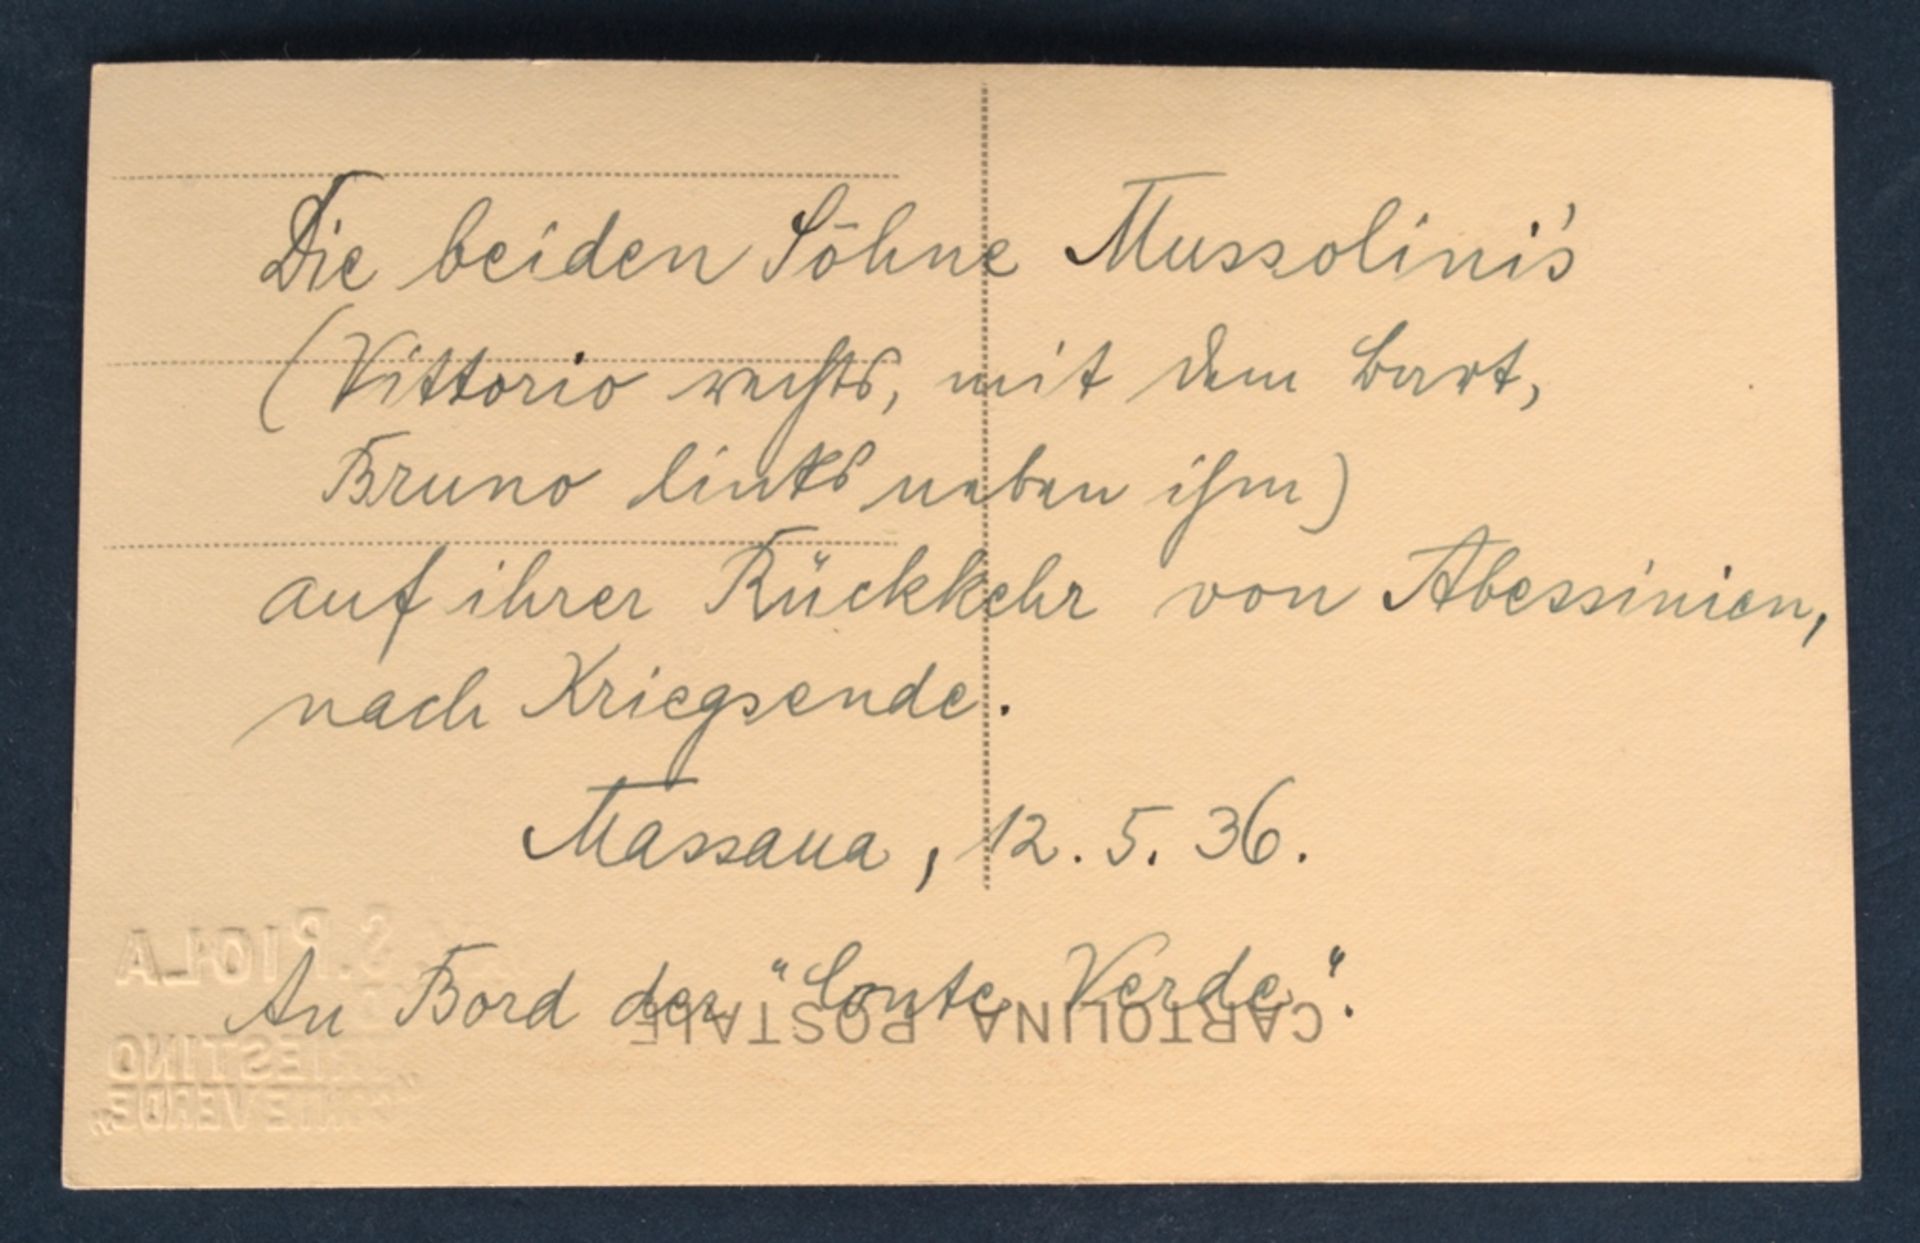 Die beiden Söhne Mussolini's
(Vittorio rechts, mit dem Bart,
Bruno links neben ihm)
auf ihrer Rückkehr von Abessinien,
nach Kriegsende.
Massaua, 12.5.36.
An Bord der "Conte Verde".
CARTOLINA POSTALE
S. RIOLA
TRIESTINO
"CONTE VERDE"